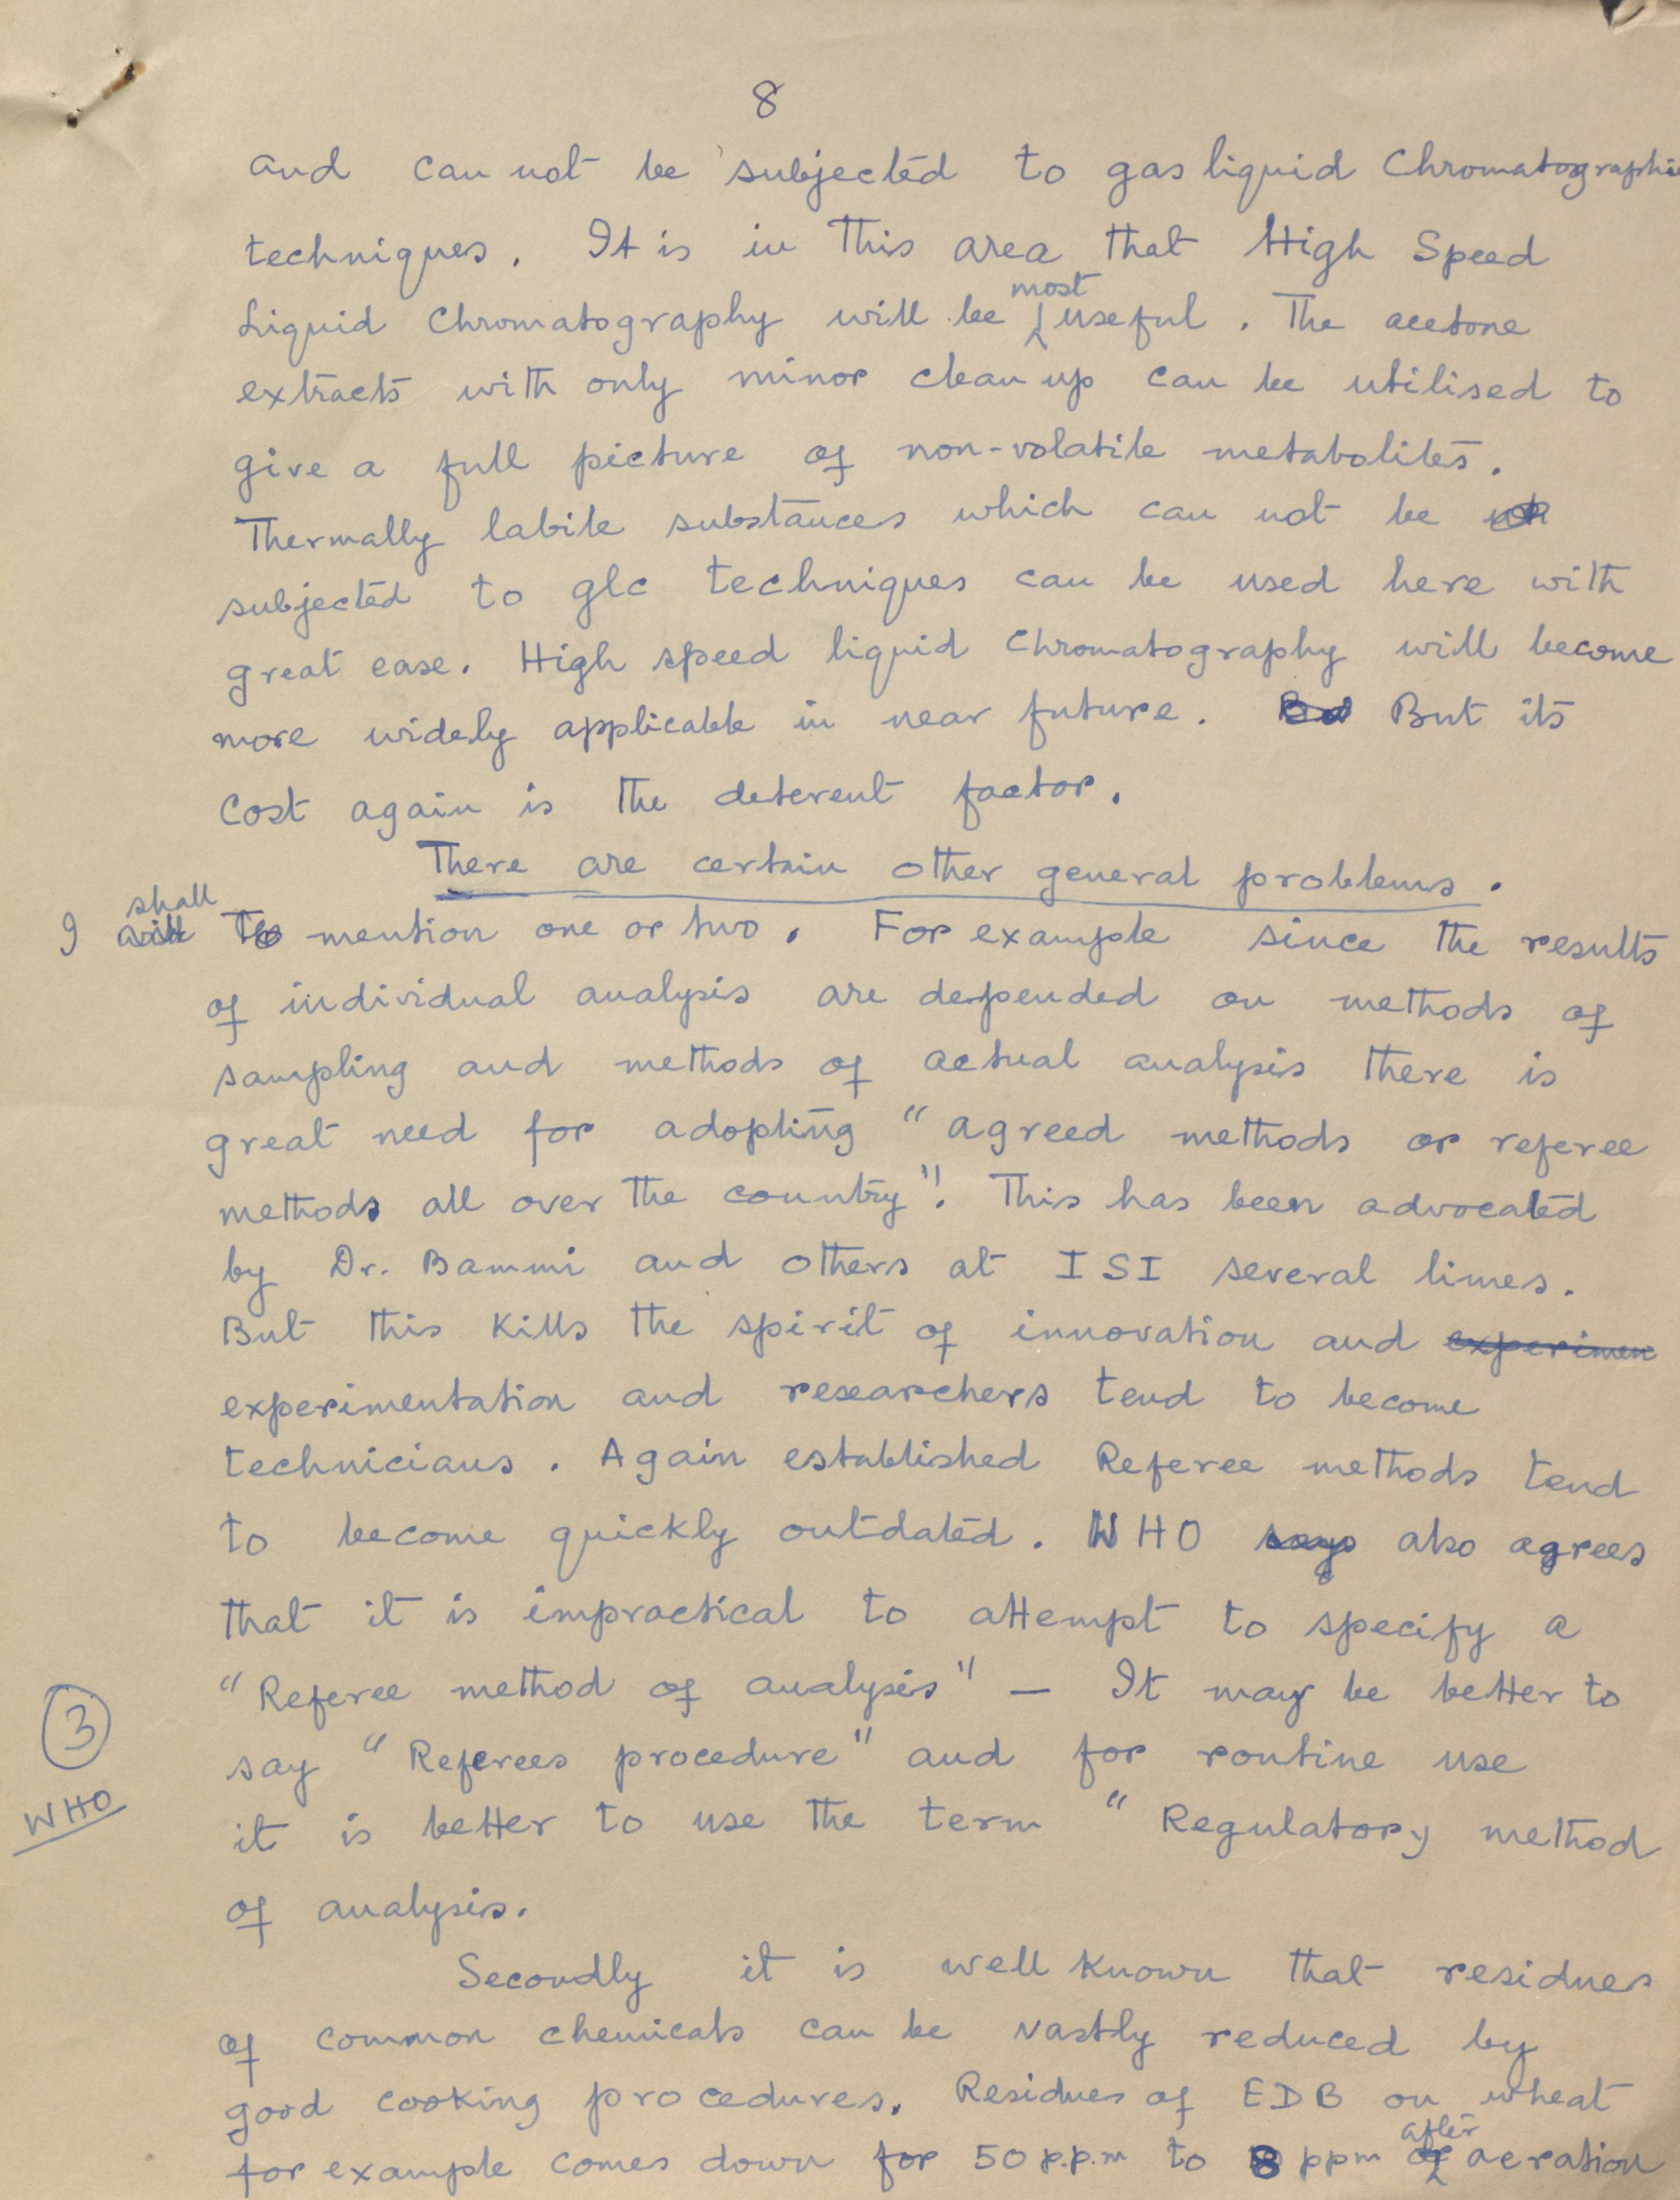 8
and can not be subjected to gas liquid Chromatographic
techniques. It is in this area that High Speed
Liquid Chromatography will be most useful. The acetone
extracts with only minor clean up can be utilised to
give a full picture of non-volatile metabolites.
Thermally labile substances which can not be
subjected to glc techniques can be used here with
great ease. High speed liquid chromatography will become
more widely applicable in near future. But its
cost again is the deterent factor.
There are certain other general problems.
I shall mention one or two. For example since the results
of individual analysis are depended on methods of
sampling and methods of actual analysis there is
great need for adopting "agreed methods or referee
methods all over the country". This has been advocated
by Dr. Bammi and others at ISI several times.
But this kills the spirit of innovation and experimen
experimentation and researchers tend to become
technicians. Again established Referee methods tend
to become quickly outdated. WHO says also agrees
that it is impractical to attempt to specify a
"Referee method of analysis" — It may be better to
say "Referees procedure" and for routine use
it is better to use the term "Regulatory method
of analysis.
3
WHO
Secondly it is well known that residues
of common chemicals can be vastly reduced by
good cooking procedures. Residues of EDB on wheat
for example comes down for 50 p.p.m to 8 ppm after aeration